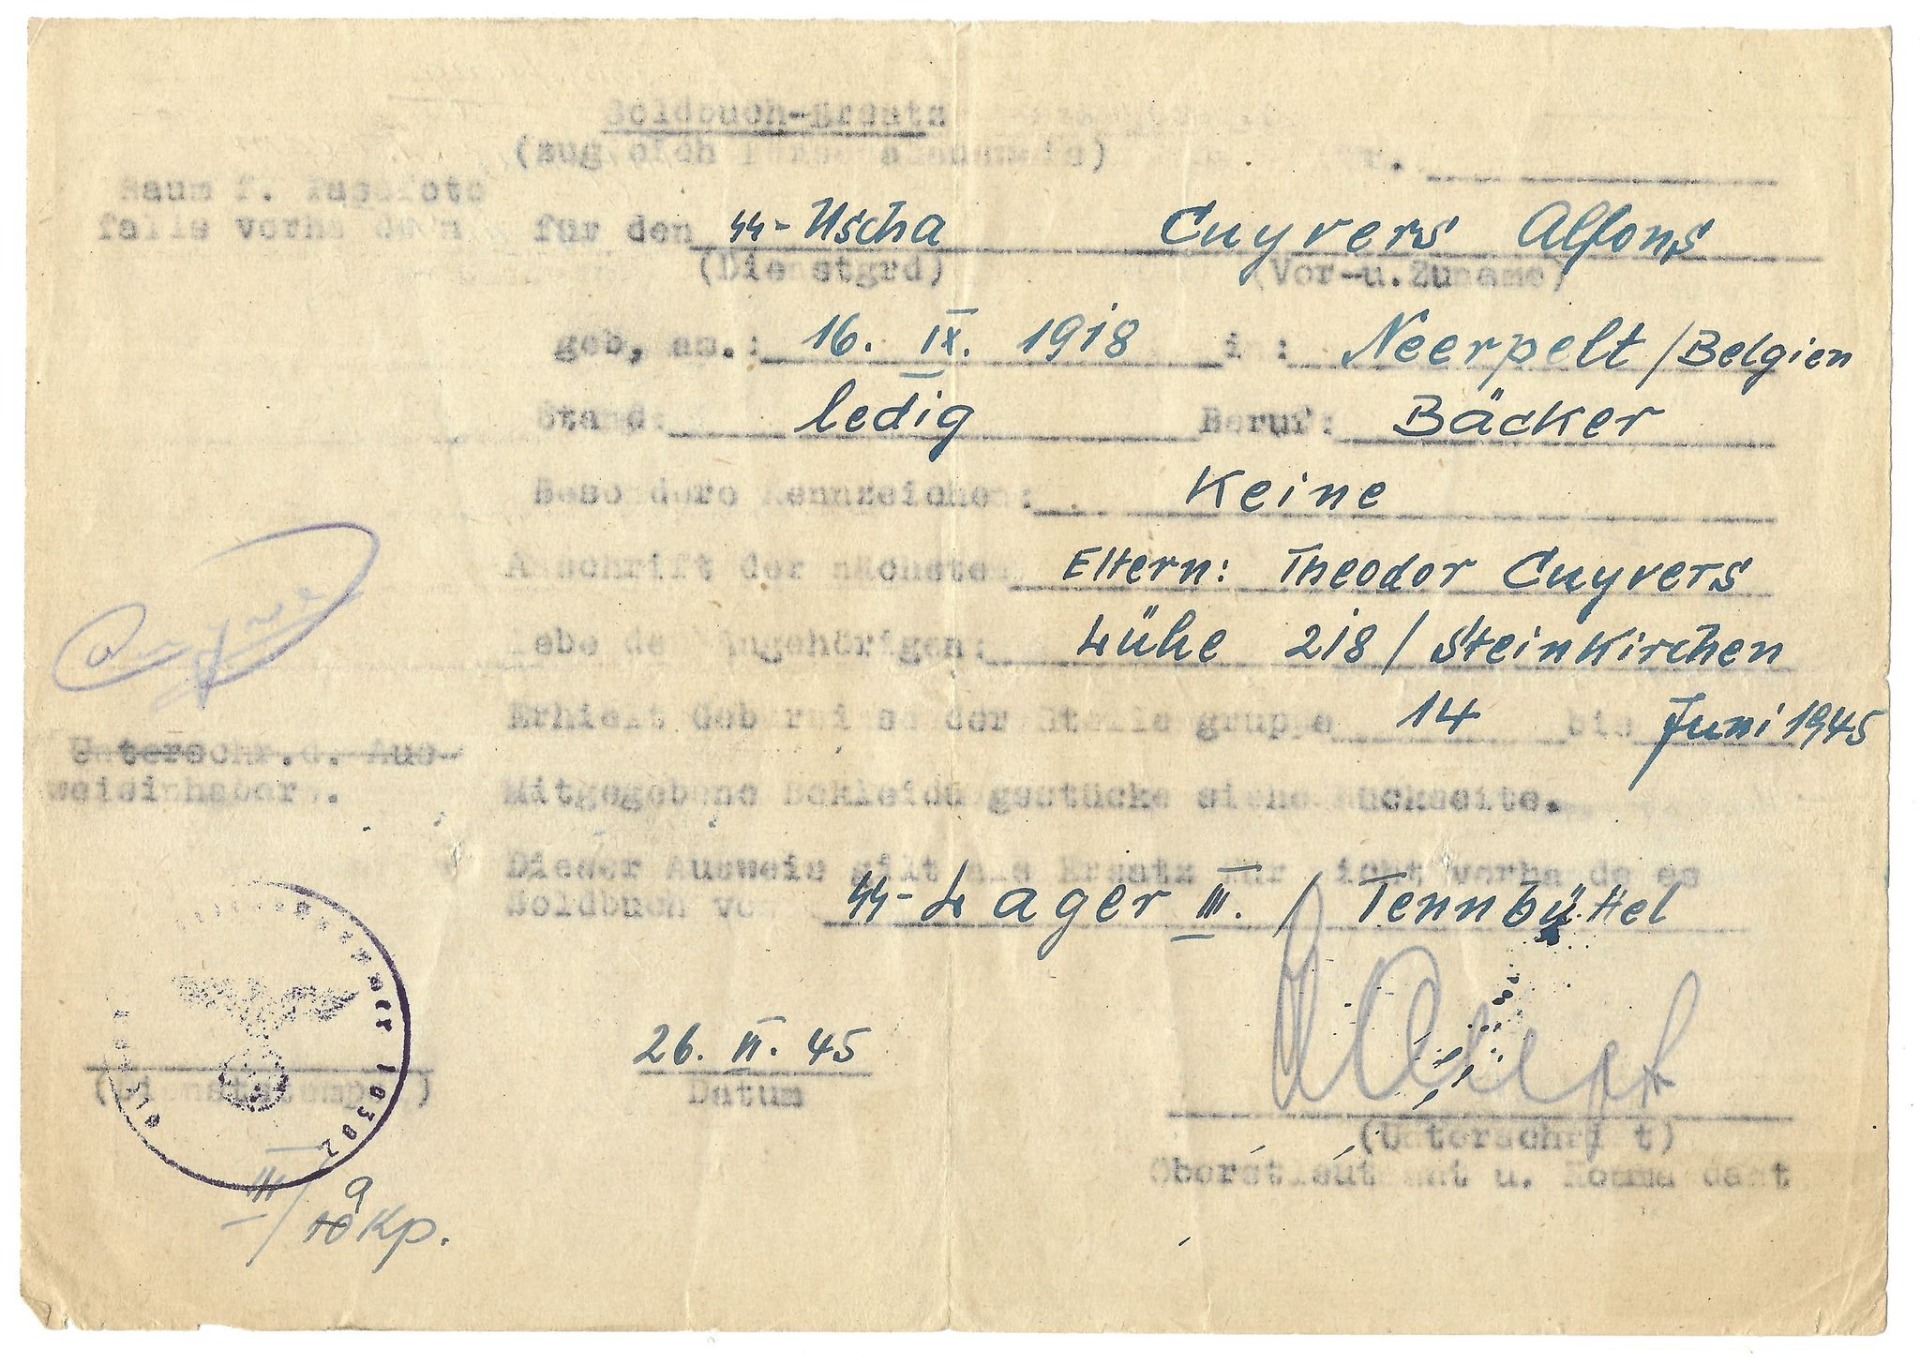 Soldbuch-Ersatz
(zugleich Personalausweis) Nr.
Raum f. Papsfoto
falls vorhanden für den SS-Uscha Cuyvers Alfons
(Dienstgrd) (Vor-u.Zuname)
geb, am.: 16. IX. 1918 in: Neerpelt/Belgien
Stand: ledig Beruf: Bäcker
Besondere Kennzeichen: Keine
Anschrift der nächsten Eltern: Theodor Cuyvers
lebenden Angehörigen: Lühe 218 / Steinkirchen
Erhielt Gebührnisse der gruppe 14 bis Juni 1945
Unterschr.d. Aus-
weisinhabers.
Mitgegebene Bekleidungsstücke siehe Rückseite.
Dieser Ausweis gilt als Ersatz für nicht vorhandenes
Soldbuch von SS-Lager III. / Tennbüttel
26. VI. 45
(Dienststempel) Datum
10302
(Unterschrift)
Oberstleutnant u. Kommandant
III/ 9 10 Kp.